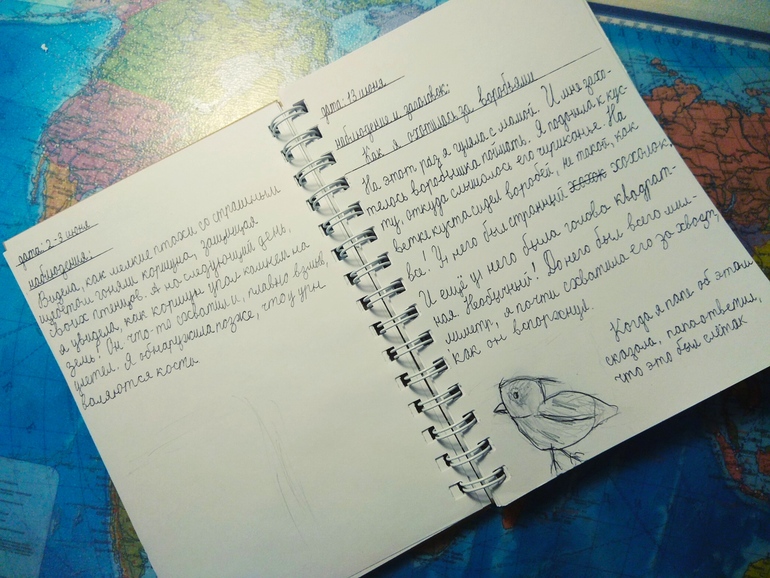 дата: 2-3 июня
наблюдения:
Видела, как мелкие птахи со страшным
шумом гоняли коршуна, защищая
своих птенцов. А на следующий день,
я увидела, как коршун упал камнем на
земь! Он что-то схватил и, плавно взмыв,
улетел. Я обнаружила позже, что у
валяются кости.
дата: 13 июня
наблюдение и заголовок:
Как я охотилась за воробьями
На этот раз я гуляла с мамой. И мне захо-
телось воробышка поймать. Я подошла к кус-
ту, откуда слышалось его чириканье. На
ветке куста сидел воробей, не такой, как
все! У него был странный хохолок.
И ещё у него была голова квадрат-
ная. Необычный! До него был всего мил-
лиметр, я почти схватила его за хвост,
как он вспорхнул!
Когда я папе об этом
сказала, папа ответил,
что это был слёток